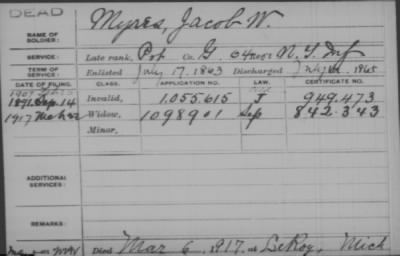 DEAD
NAME OF SOLDIER: Myres, Jacob W.
SERVICE: Late rank, Pvt Co. G, N.Y. Inf
TERM OF SERVICE: Enlisted July 17, 1863 Discharged 1865
DATE OF FILING. CLASS. APPLICATION NO. LAW. CERTIFICATE NO.
1891 Sep. 14 Invalid, 1,055,615 J 949,473
1917 Widow, 1098901 Sep 842,343
Minor,
ADDITIONAL SERVICES:
REMARKS:
Died Mar 6, 1917, at LeRoy, Mich